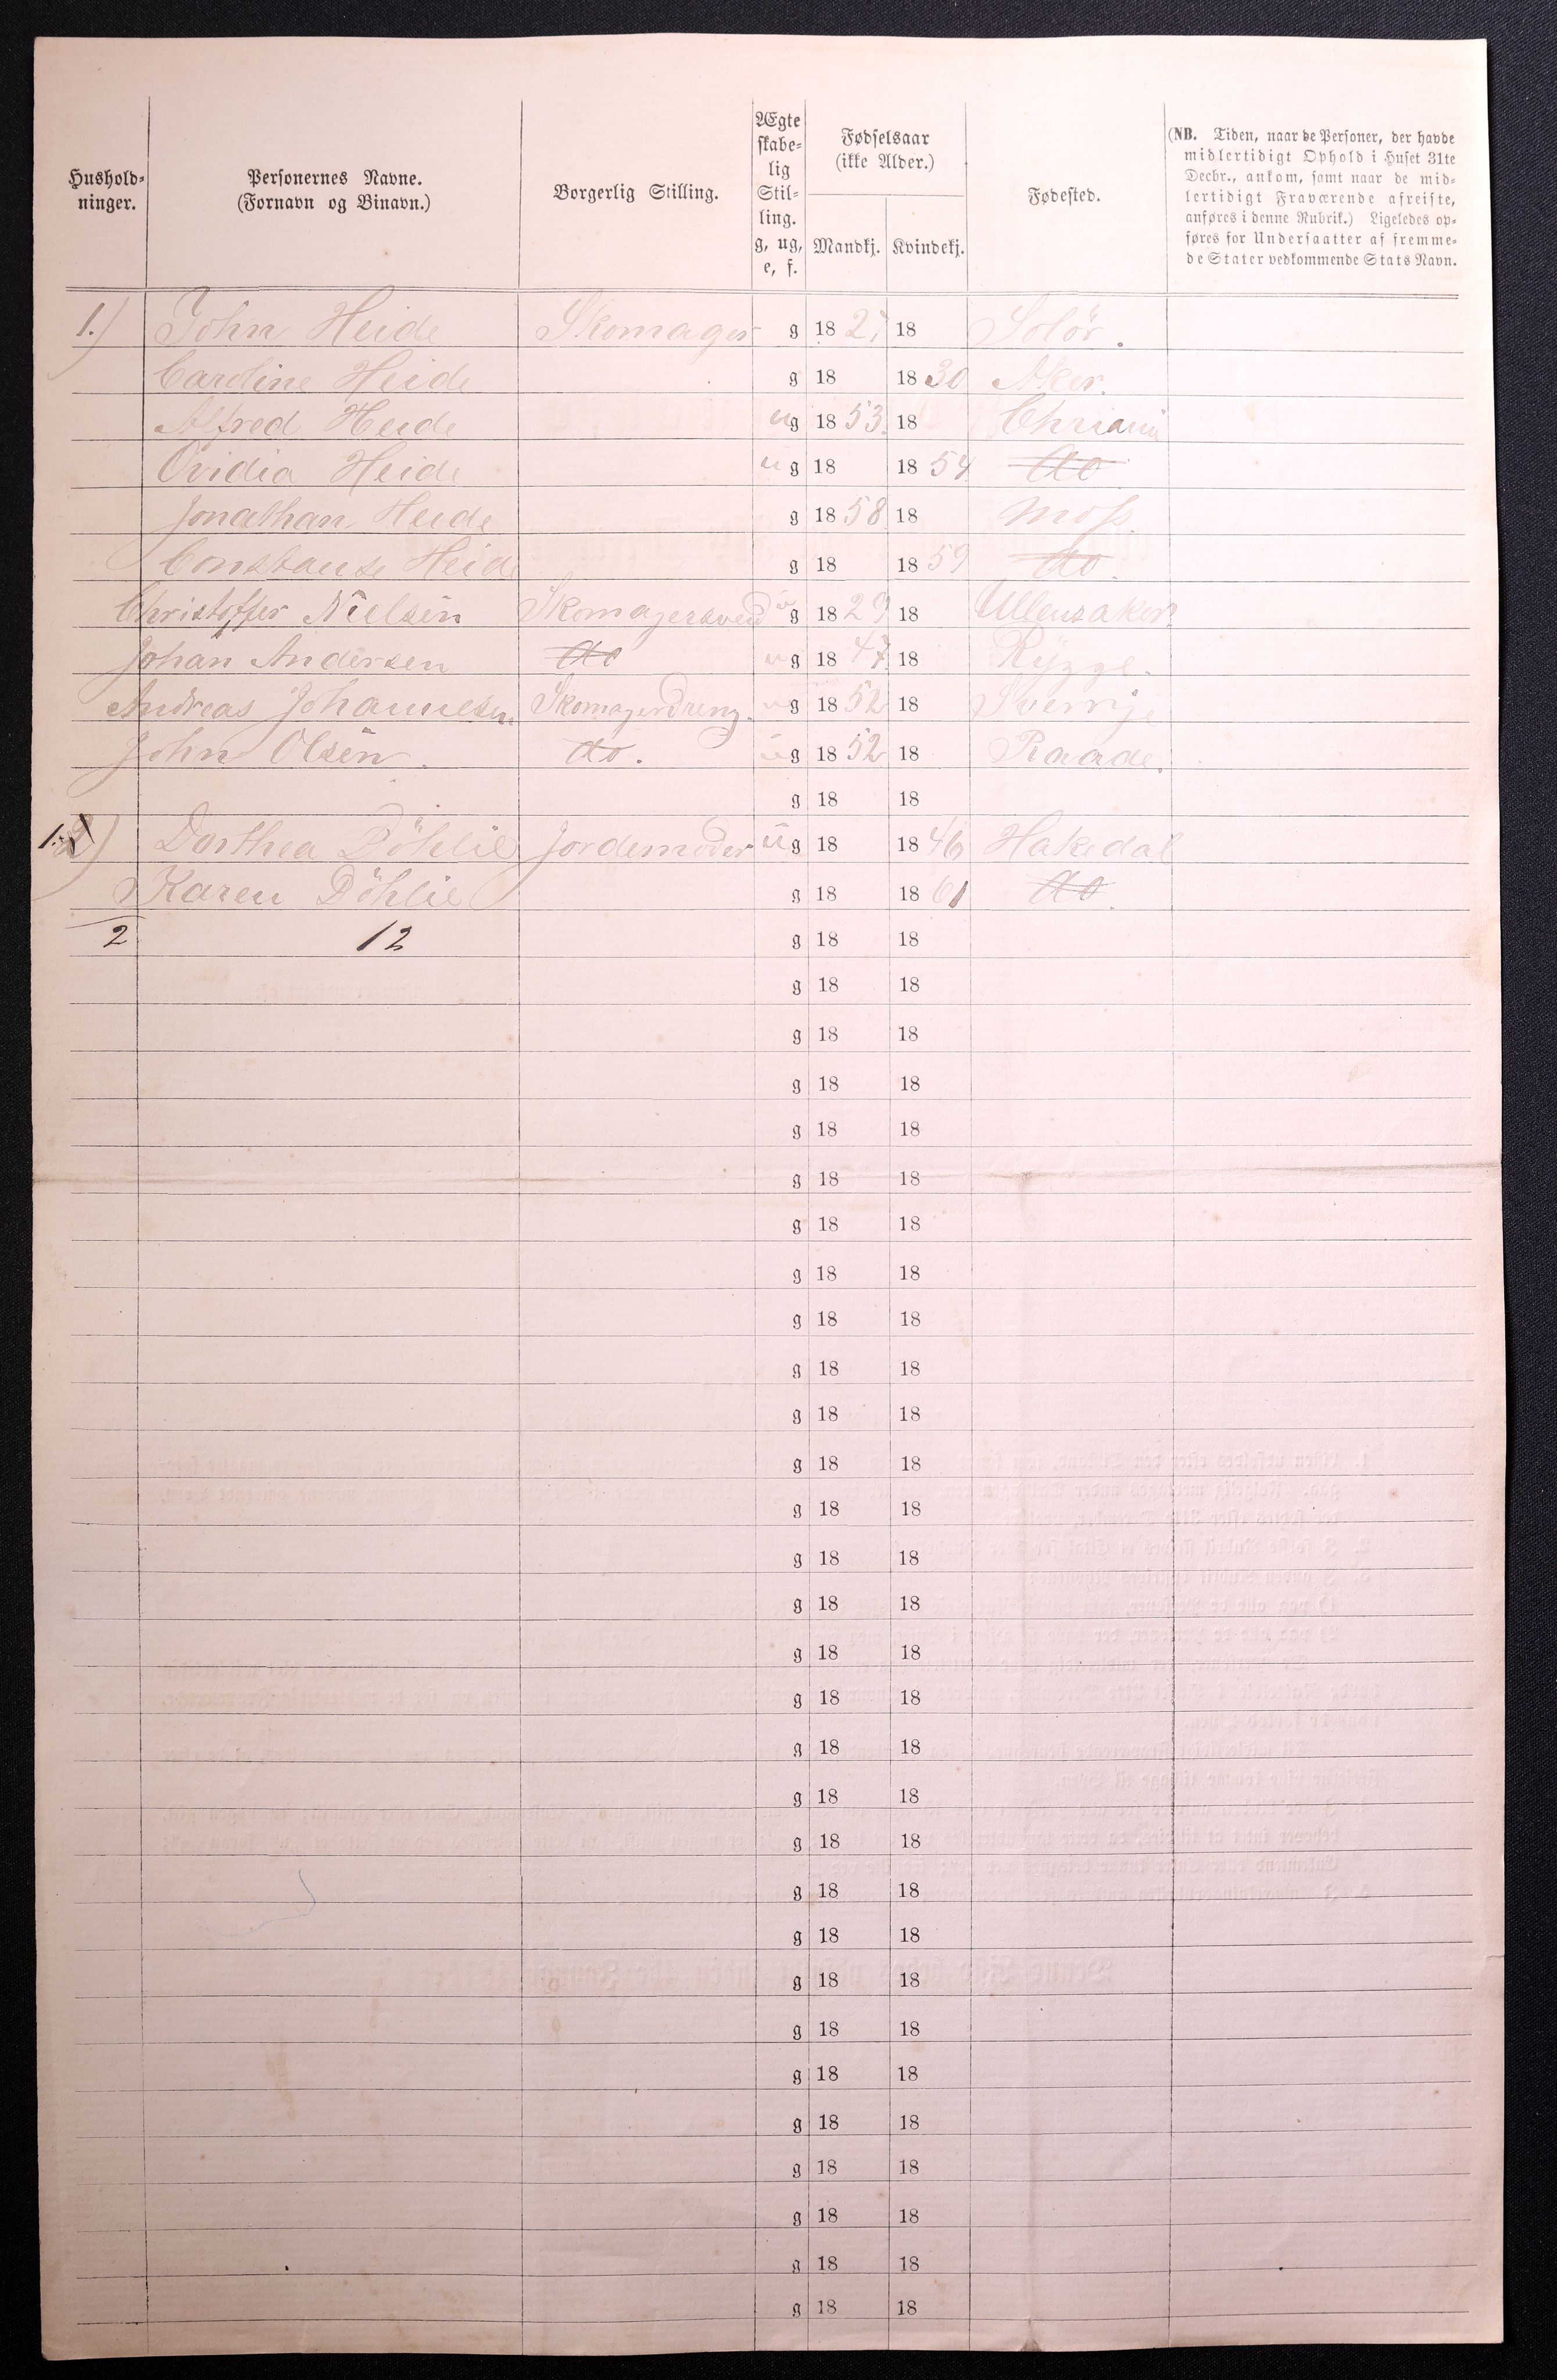 Hushold-ninger. Personernes Navne. (Fornavn og Binavn.) Borgerlig Stilling. Ægteskabe-lig Stil-ling. g, ug, e, f. Fødselsaar (ikke Alder.) Mandkj. Kvindekj. Fødested. (NB. Tiden, naar de Personer, der havde midlertidigt Ophold i Huset 31te Decbr., ankom, samt naar de mid-lertidigt Fraværende afreiste, anføres i denne Rubrik.) Ligeledes op-føres for Undersaatter af fremme-de Stater vedkommende Stats Navn.
1.) John Heide Skomager g 18 27 18 Solör.
Caroline Heide g 18 18 30 Aker.
Alfred Heide ug 18 53. 18 Christiania
Ovidia Heide ug 18 18 54 do
Jonathan Heide g 18 58 18 Moss.
Constanse Heide g 18 18 59 do.
Christoffer Nielsen Skomagersvend ug 18 29 18 Ullensaker
Johan Andersen do ug 18 47. 18 Rygge.
Andreas Johannesen Skomagerdreng. ug 18 52 18 Sverrige
John Olsen. do. ug 18 52 18 Raade.
g 18 18
2) Dorthea Döhlie Jordemoder ug 18 18 46 Hakedal
Karen Döhlie g 18 18 61 do.
2 12 g 18 18
g 18 18
g 18 18
g 18 18
g 18 18
g 18 18
g 18 18
g 18 18
g 18 18
g 18 18
g 18 18
g 18 18
g 18 18
g 18 18
g 18 18
g 18 18
g 18 18
g 18 18
g 18 18
g 18 18
g 18 18
g 18 18
g 18 18
g 18 18
g 18 18
g 18 18
g 18 18
g 18 18
g 18 18
g 18 18